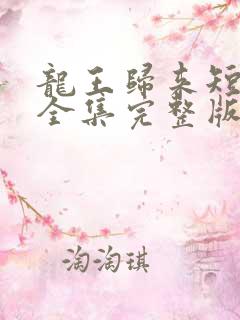 龍王歸來短
全集完整版
淘淘琪